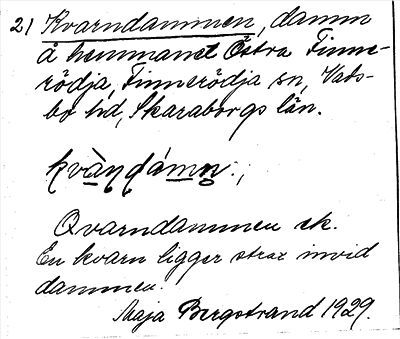 21 Kvarndammen, damm
å hemmanet Östra Finne-
rödja, Finnerödja sn, Vads-
bo hd, Skaraborgs län.
kvàṇdámn̥.,
Qvarndammen ek.
En kvarn ligger strax invid
dammen.
Maja Bergstrand 1929.